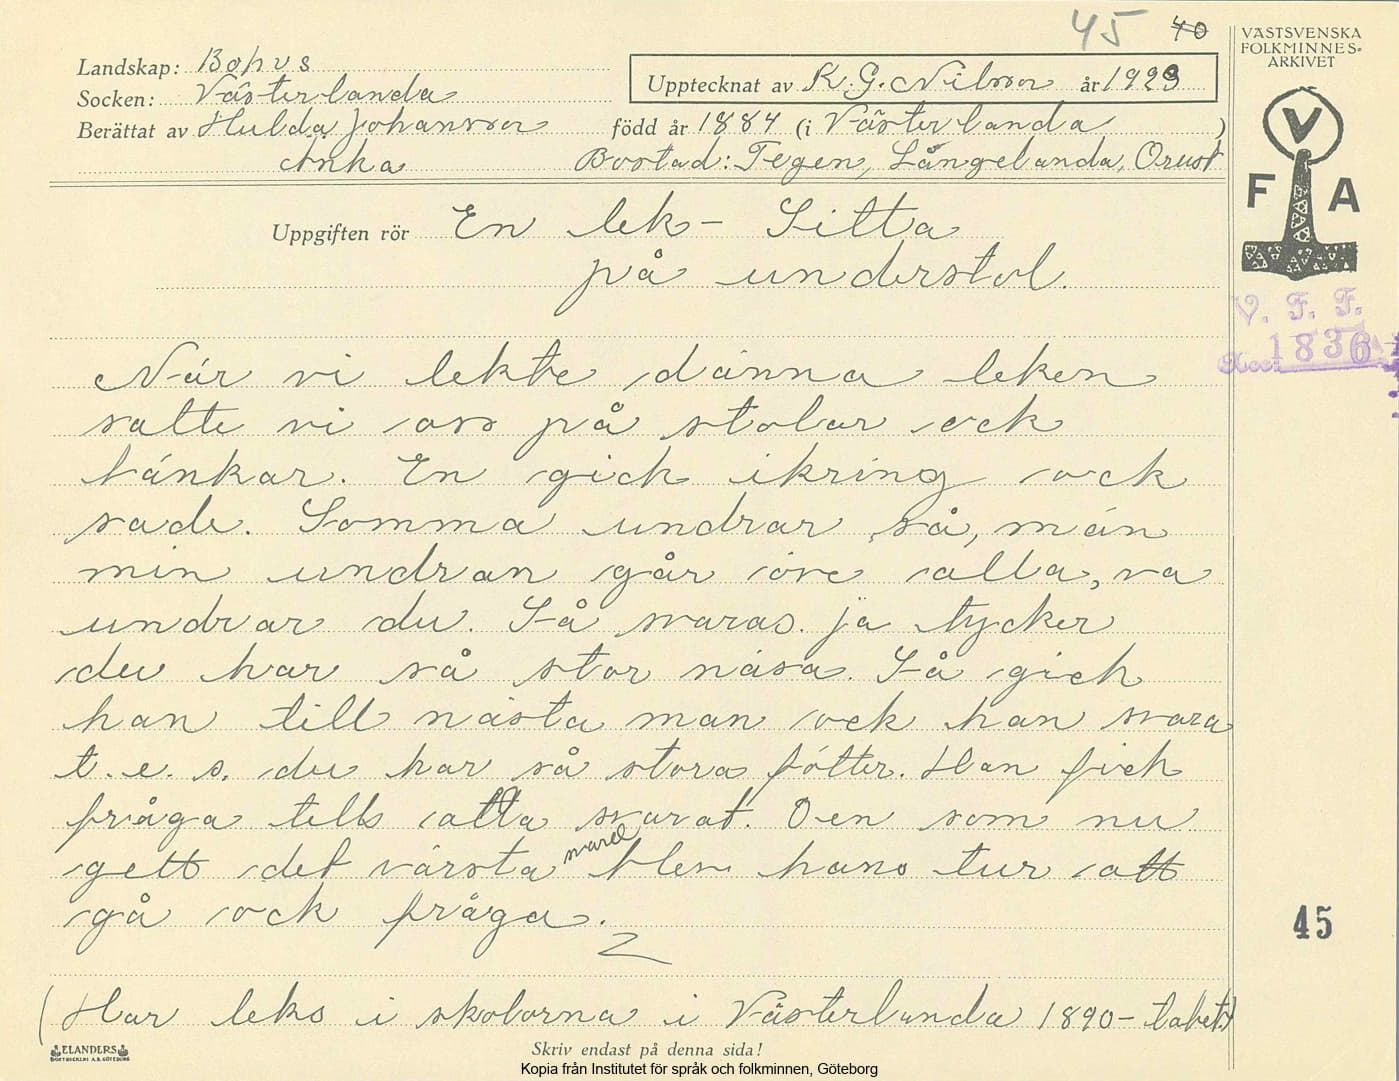 45 40
VÄSTSVENSKA
FOLKMINNES-
ARKIVET
Landskap: Bohus
Upptecknat av K. G. Nilsson år 1923
Socken: Västerlanda
Berättat av Hulda Johansson född år 1884 (i Västerlanda )
Änka Bostad: Tegen, Långelanda, Orust
V
F A
Uppgiften rör En lek - Sitta
på understol.
V. F. F.
Acc. 1836
När vi lekte dänna leken
satte vi oss på stolar ock
bänkar. En gick ikring ock
sade. Somma undrar så, män
min undran går öve alla, va
undrar du. Så svaras. ja tycker
du har så stor näsa. Så gick
han till nästa man ock han svara
t. e. s. du har så stora fötter. Han fick
fråga tells alla svarat. Den som nu
gett det värsta svaret blev hans tur att
gå ock fråga.
45
(Har leks i skolorna i Västerlanda 1890-talet.)
ELANDERS
BOKTRYCKERI A.B. GÖTEBORG
Skriv endast på denna sida!
Kopia från Institutet för språk och folkminnen, Göteborg